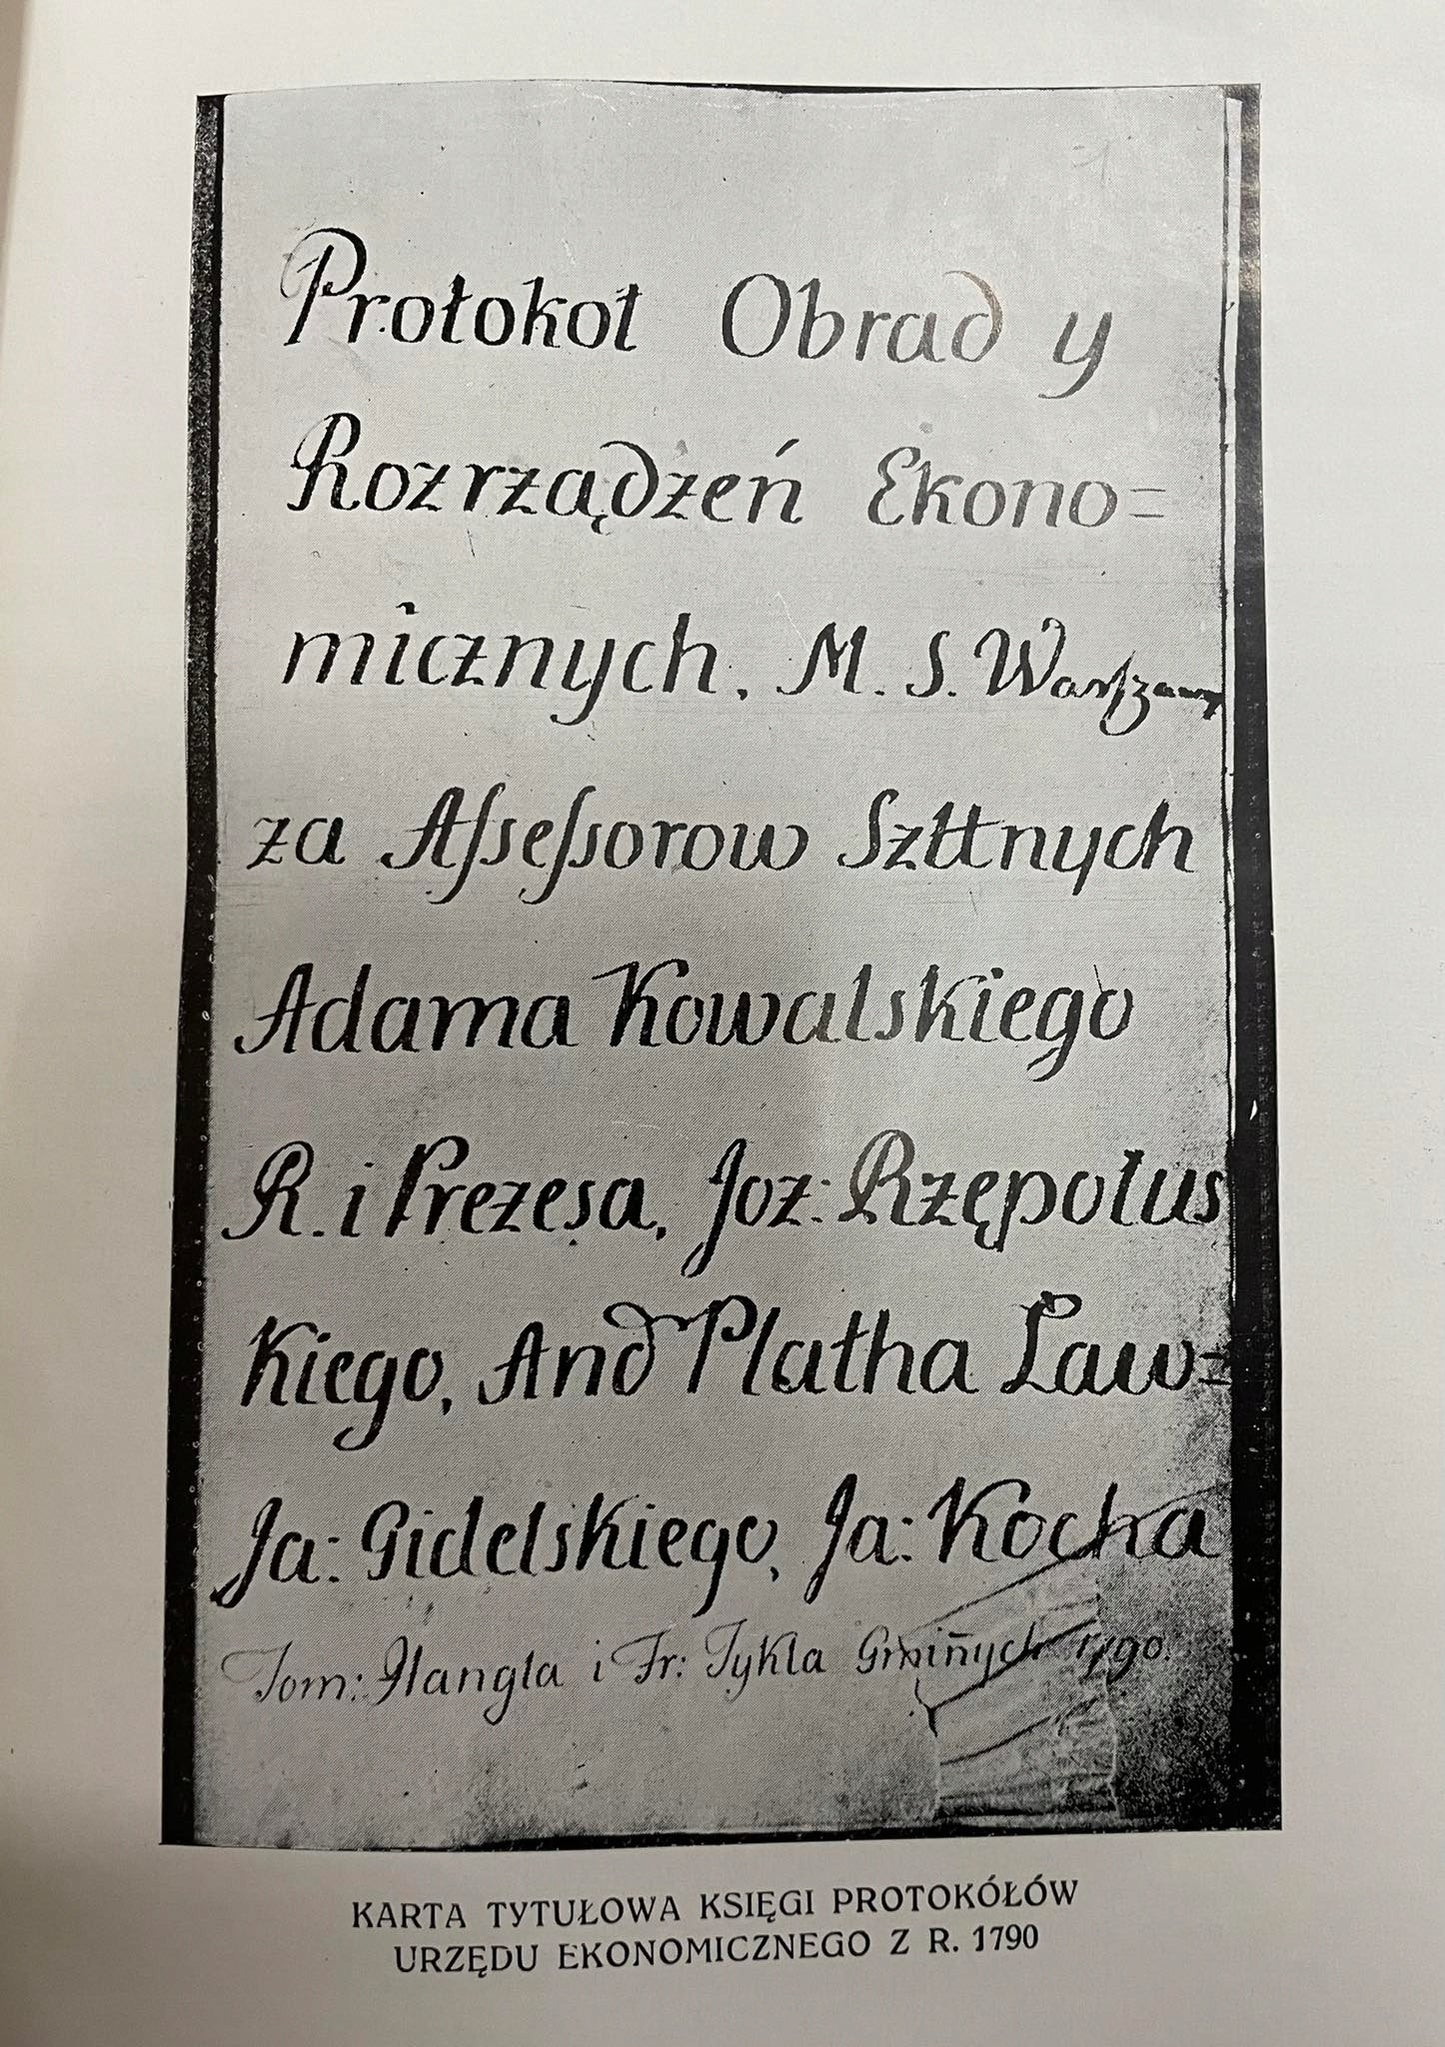 Protokoł Obrad y
Rozrządzeń Ekono=
micznych. M. S. Warszawy
za Aſseſsorow Szttnych
Adama Kowalskiego
R. i Prezesa, Joz: Rzępołus
Kiego, And Platha Law=
Ja: Gidelskiego, Ja: Kocha
Tom: Hangla i Fr: Tykla Gmiñych 1790.
KARTA TYTUŁOWA KSIĘGI PROTOKÓŁÓW
URZĘDU EKONOMICZNEGO Z R. 1790